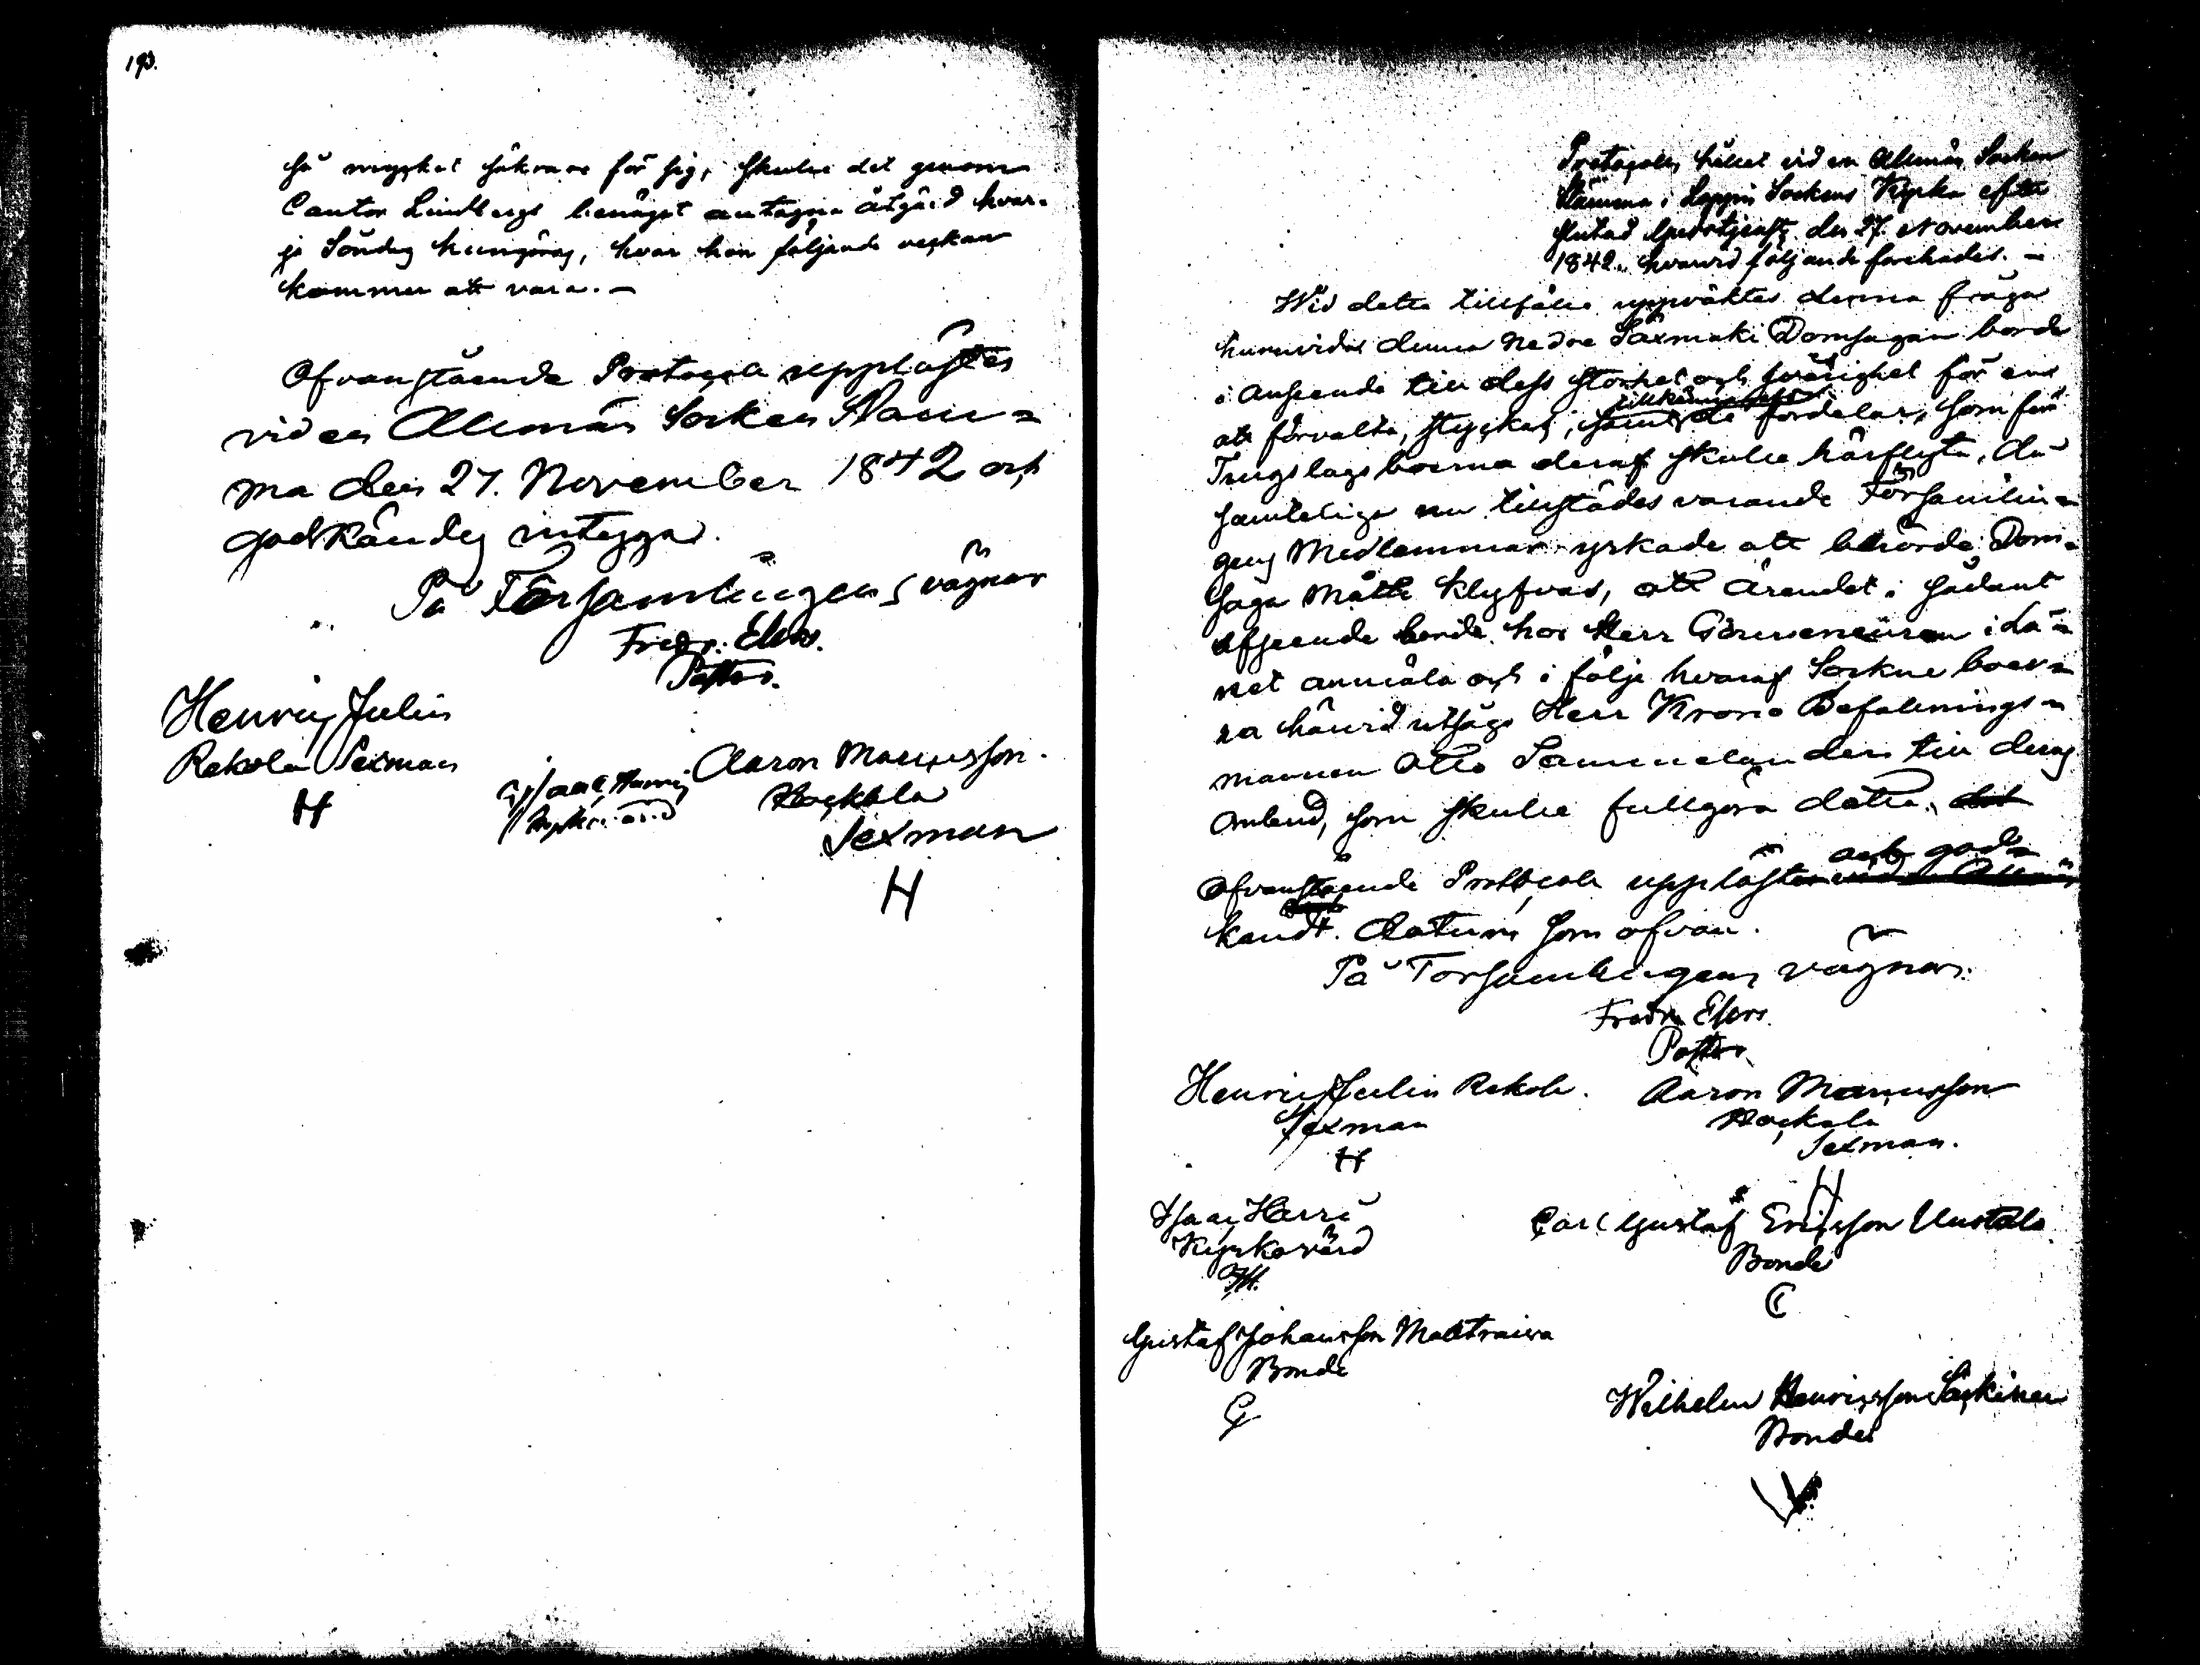 193.
så mycket säkrare för sig, skulle det genom
Cantor Lindbergs benäget antagna åtgärd hvar-
je Söndag kungöras, hvar han följande veckan
kommer att vara. -
Ofvanstående Protocoll upplästes
vid en Allmän Socken Stäm=
ma den 27. November 1842 och
godkändes intygar.
På Församlingens vägnar
Fredr. Elers.
Pastor.
Henric Julin
Rekola Sexman
H
Isaac Harri
Kyrkovärd
Aaron Manusson.
Hockola
Sexman
H
Protocoll, hållet vid en Allmän Socken
Stämma i Loppis Sockens Kyrka efter
slutad Gudstjenst, den 27. November
1842. hvarvid följande förehades. -
Wid detta tillfälle uppväktes denna fråga
huruvida denna nedre Saxmäki Domsagan borde
i anseende till dess storhet och svårighet för en
att förvalta, styckas, samt de fördelar, som för
Tingslagsboerna deraf skulle härflyta, då
samtelige nu tillstädes varande Församlin=
gens Medlemmar yrkade att berörde Dom=
saga måtte klyfvas, att ärendet i sådant
afseende borde hos Herr Gouverneuren i Lä=
net anmäla och i följe hvaraf Sockne boer=
na härvid utsågo Herr Krono Befallnings=
mannen Otto Samuel den till deras
ombud, som skulle fullgöra detta.
Ofvanstående Protocoll upplästes och god=
kändt. Datum som ofvan.
På Församlingens vägnar.
Fredr. Elers.
Pastor.
Henric Julin Rekola.
Sexman
H
Aaron Manusson
Hockola
Sexman.
H
Isaac Harri
Kyrkovärd
IH.
Carl Gustaf Ericsson Uustalo
Bonde
C
Gustaf Johansson Maltraiva
Bonde
G
Wilhelm Henricsson Säckinen
Bonde
W